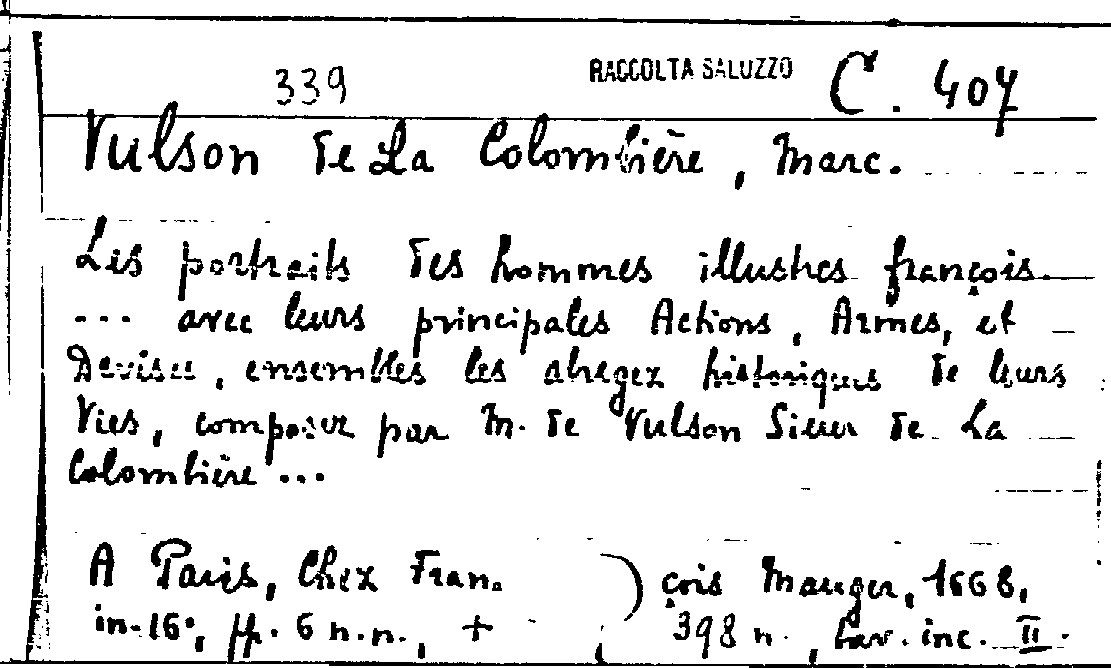 339 RACCOLTA SALUZZO C. 407
Vulson de La Colombière, Marc.
Les portraits des hommes illustres françois
... avec leurs principales Actions, Armes, et
Devises, ensembles les abregez historiques de leurs
Vies, composez par M. de Vulson Sieur de La
Colombière ...
A Paris, Chez Fran. ) çois Mauger, 1668,
in-16°, pp. 6 n.n., + 398 n., tav. inc. II.